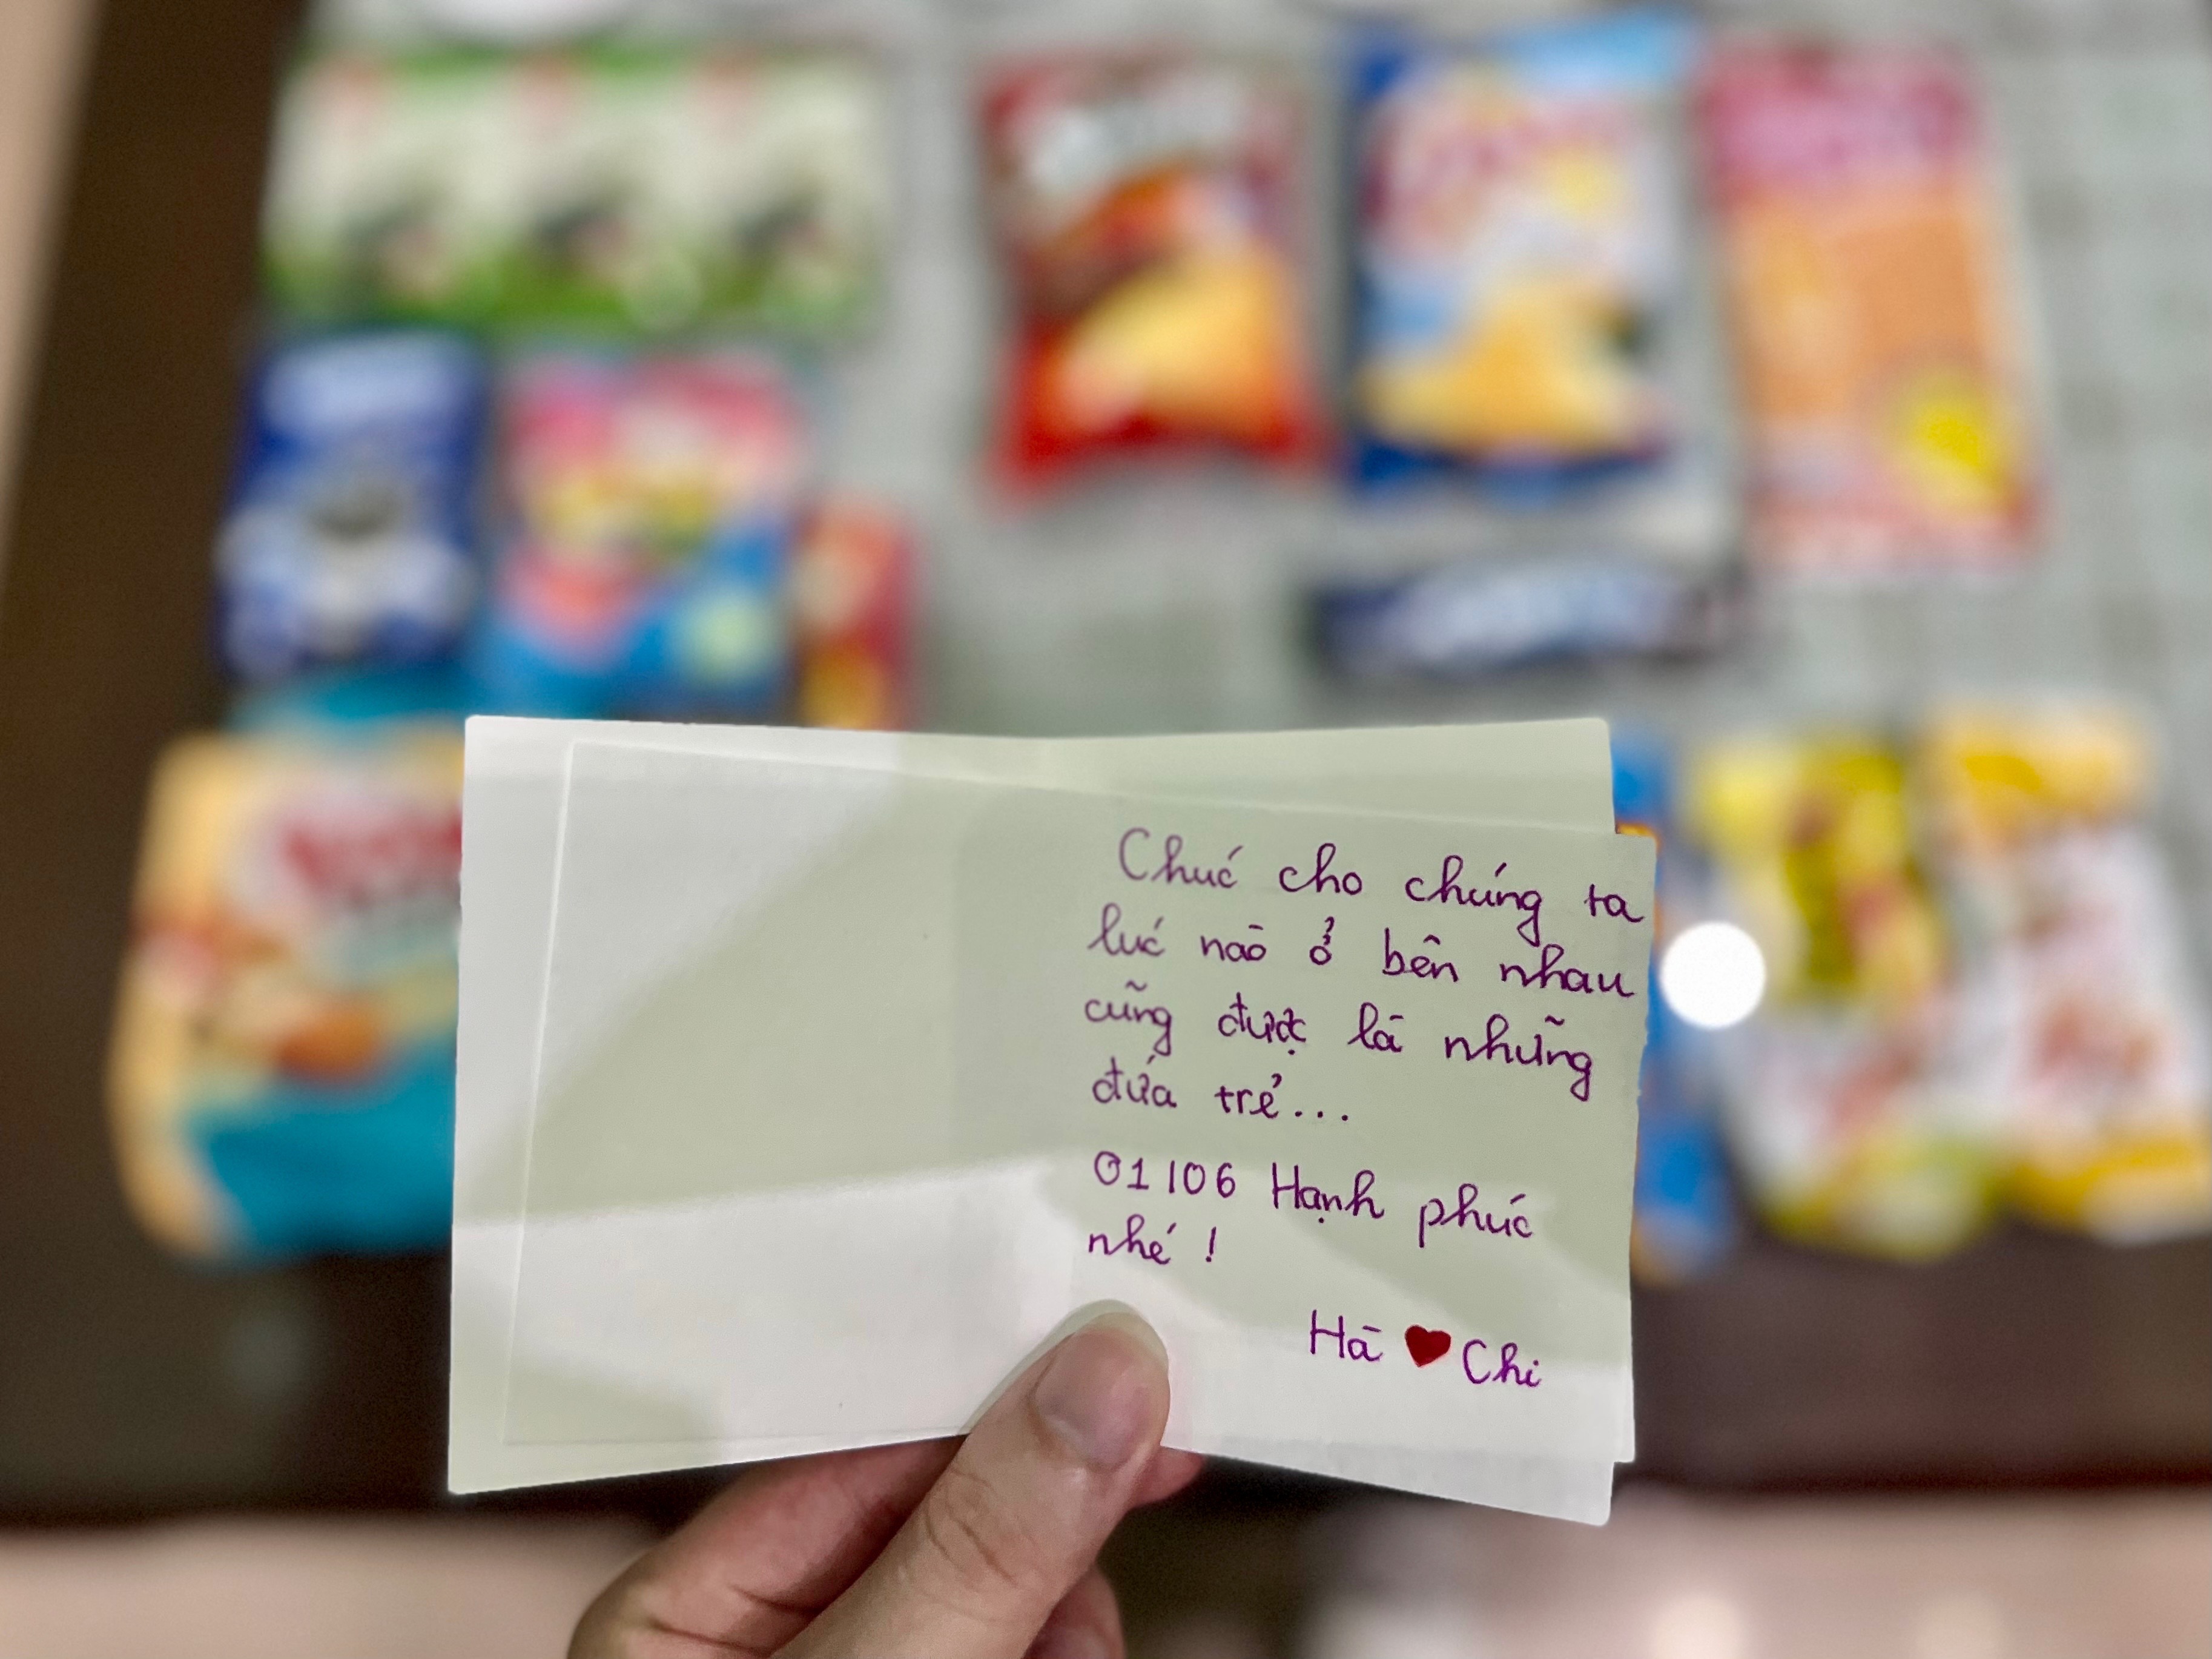 Chúc cho chúng ta
lúc nào ở bên nhau
cũng được là những
đứa trẻ...
01106 Hạnh phúc
nhé !
Hà ♥ Chi